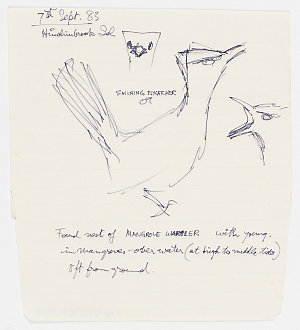 7th Sept. 83
Hinchinbrook Isl.
SHINING FLYCATCHER
Found nest of MANGROVE WARBLER with young.
in mangroves - over water (at high to middle tide)
8ft from ground.